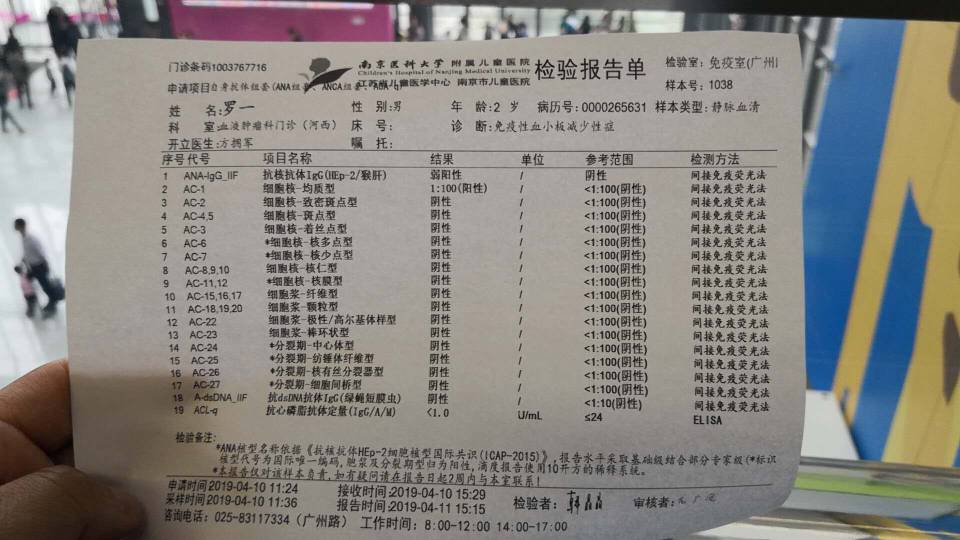 门诊条码1003767716
南京医科大学 附属儿童医院
Children's Hospital of Nanjing Medical University
江苏省儿童医学中心 南京市儿童医院
检验报告单
检验室: 免疫室(广州
申请项目:自身抗体组套(ANA组套、ANCA组套、
样本号: 1038
姓 名:罗一 性 别:男 年 龄:2 岁 病历号: 0000265631 样本类型: 静脉血清
科 室:血液肿瘤科门诊(河西) 床 号: 诊 断:免疫性血小板减少性症
开立医生:方拥军 嘱 托:
序号 代号 项目名称 结果 单位 参考范围 检测方法
1 ANA-IgG_IIF 抗核抗体IgG(HEp-2/猴肝) 弱阳性 / 阴性 间接免疫荧光法
2 AC-1 细胞核-均质型 1:100(阳性) / <1:100(阴性) 间接免疫荧光法
3 AC-2 细胞核-致密斑点型 阴性 / <1:100(阴性) 间接免疫荧光法
4 AC-4,5 细胞核-斑点型 阴性 / <1:100(阴性) 间接免疫荧光法
5 AC-3 细胞核-着丝点型 阴性 / <1:100(阴性) 间接免疫荧光法
6 AC-6 *细胞核-核多点型 阴性 / <1:100(阴性) 间接免疫荧光法
7 AC-7 *细胞核-核少点型 阴性 / <1:100(阴性) 间接免疫荧光法
8 AC-8,9,10 细胞核-核仁型 阴性 / <1:100(阴性) 间接免疫荧光法
9 AC-11,12 *细胞核-核膜型 阴性 / <1:100(阴性) 间接免疫荧光法
10 AC-15,16,17 细胞浆-纤维型 阴性 / <1:100(阴性) 间接免疫荧光法
11 AC-18,19,20 细胞浆-颗粒型 阴性 / <1:100(阴性) 间接免疫荧光法
12 AC-22 细胞浆-极性/高尔基体样型 阴性 / <1:100(阴性) 间接免疫荧光法
13 AC-23 细胞浆-棒环状型 阴性 / <1:100(阴性) 间接免疫荧光法
14 AC-24 *分裂期-中心体型 阴性 / <1:100(阴性) 间接免疫荧光法
15 AC-25 *分裂期-纺锤体纤维型 阴性 / <1:100(阴性) 间接免疫荧光法
16 AC-26 *分裂期-核有丝分裂器型 阴性 / <1:100(阴性) 间接免疫荧光法
17 AC-27 *分裂期-细胞间桥型 阴性 / <1:100(阴性) 间接免疫荧光法
18 A-dsDNA_IIF 抗dsDNA抗体IgG(绿蝇短膜虫) 阴性 / <1:10(阴性) 间接免疫荧光法
19 ACL-q 抗心磷脂抗体定量(IgG/A/M) <1.0 U/mL ≤24 ELISA
检验备注:
*ANA核型名称依据《抗核抗体HEp-2细胞核型国际共识(ICAP-2015)》,报告水平采取基础级结合部分专家级(*标识
核型代号为国际唯一编码,胞浆及分裂期型归为阳性,滴度报告使用10开方的稀释系统。
*本报告仅对该样本负责,如有疑问请在报告日起2周内与本室联系!
申请时间:2019-04-10 11:24 接收时间:2019-04-10 15:29
采样时间:2019-04-10 11:36 报告时间:2019-04-11 15:15 检验者: 审核者:
咨询电话: 025-83117334(广州路) 工作时间: 8:00-12:00 14:00-17:00